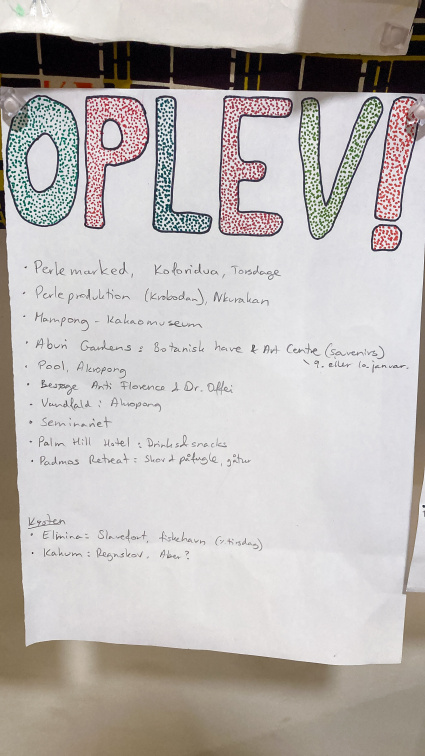 OPLEV!
· Perlemarked, Koforidua, Torsdage
· Perleproduktion (Krobodan), Nkurakan
· Mampong - Kakaomuseum
· Aburi Gardens: Botanisk have & Art Centre (savenirs)
9. eller 10. januar.
· Pool, Akropong
· Besøge Anti Florence & Dr. Offei
· Vandfald: Akropong
· Seminariet
· Palm Hill Hotel: Drinks & snacks
· Padmos Retreat: Skov & påfugle, gåtur
Kysten
· Elmina: Slavefort, fiskehavn (% tirsdag)
· Kakum: Regnskov. Aber?